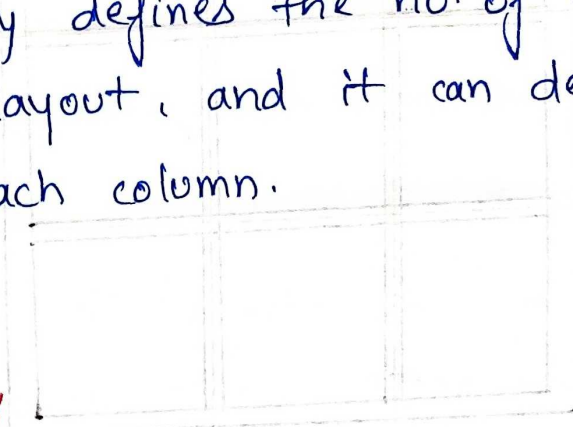 y defines the no. of
ayout, and it can de
ach column.